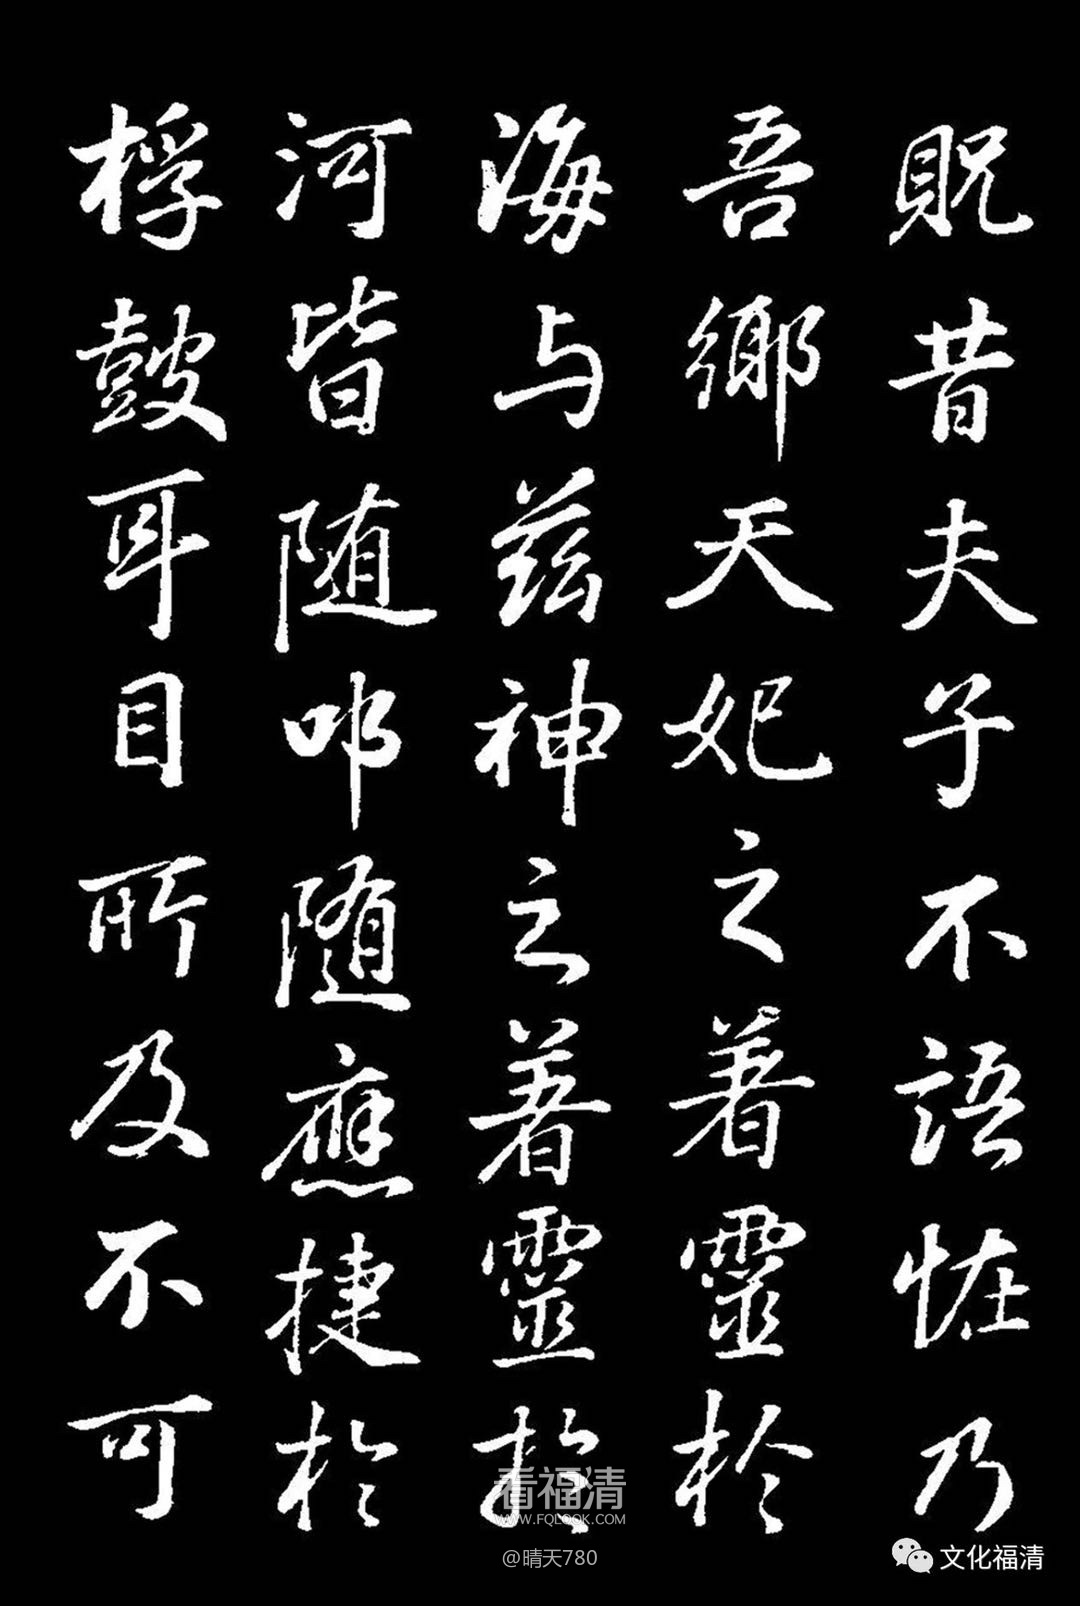 贶昔夫子不語恠乃
吾鄉天妃之著靈於
海与兹神之著靈於
河皆随叩随應捷於
桴鼓耳目所及不可
看福清
WWW.FQLOOK.COM
@晴天780
文化福清